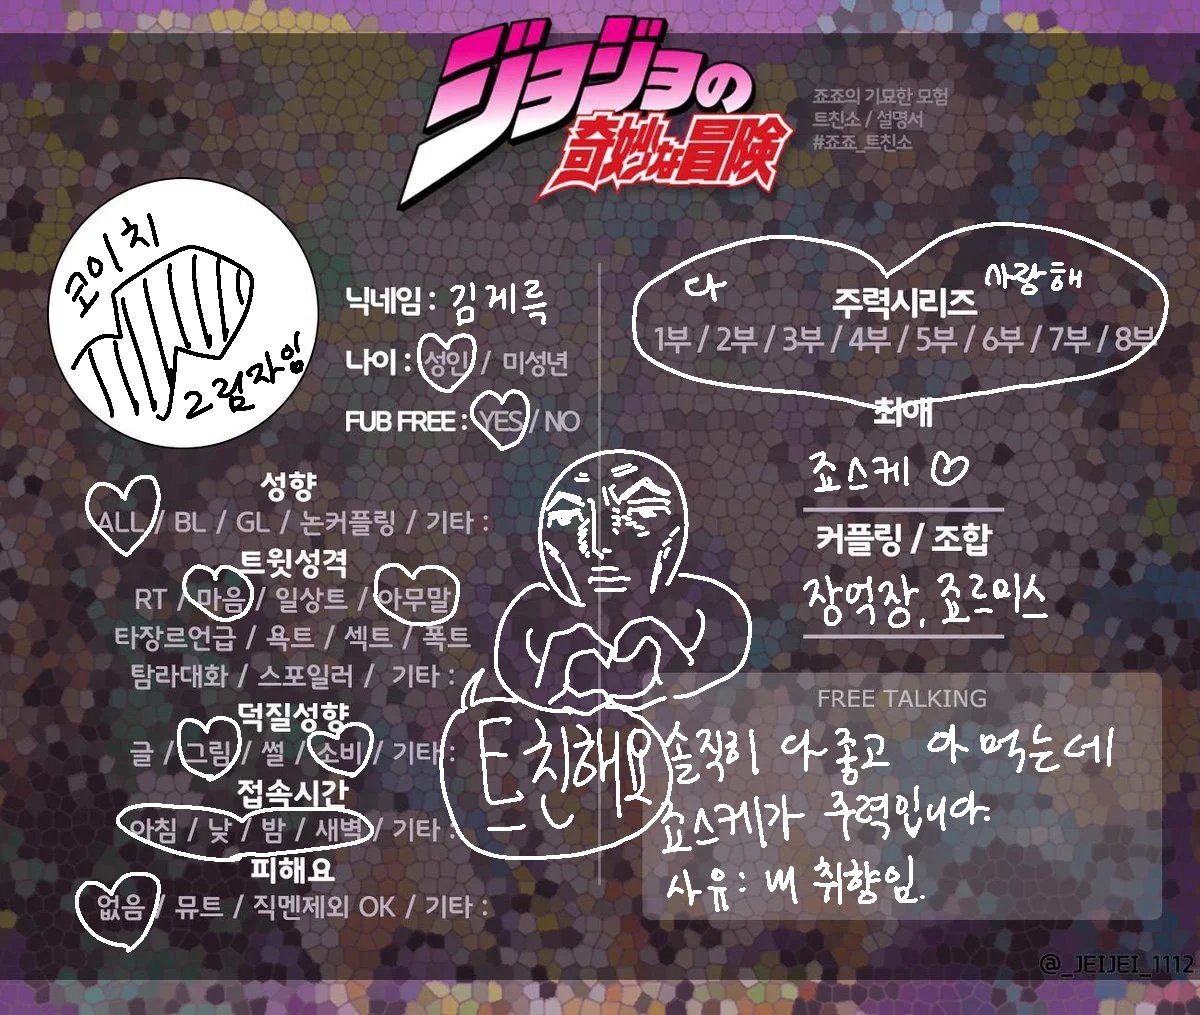 ジョジョの
奇妙な冒険
죠죠의 기묘한 모험
트친소 / 설명서
#죠죠_트친소
코이치
그림자임
닉네임 : 김제륵
나이 : 성인 / 미성년
FUB FREE : YES / NO
성향
ALL / BL / GL / 논커플링 / 기타 :
트윗성격
RT / 마음 / 일상트 / 아무말
타장르언급 / 욕트 / 섹트 / 폭트
탐라대화 / 스포일러 / 기타 :
덕질성향
글 / 그림 / 썰 / 소비 / 기타 :
접속시간
아침 / 낮 / 밤 / 새벽 / 기타 :
피해요
없음 / 뮤트 / 직멘제외 OK / 기타 :
트친해요
다 사랑해
주력시리즈
1부 / 2부 / 3부 / 4부 / 5부 / 6부 / 7부 / 8부
최애
죠스케 ♡
커플링 / 조합
장억장, 죠르미스
FREE TALKING
솔직히 다 좋고 다 먹는데
죠스케가 주력입니다.
사유 : 내 취향임.
@_JEIJEI_1112